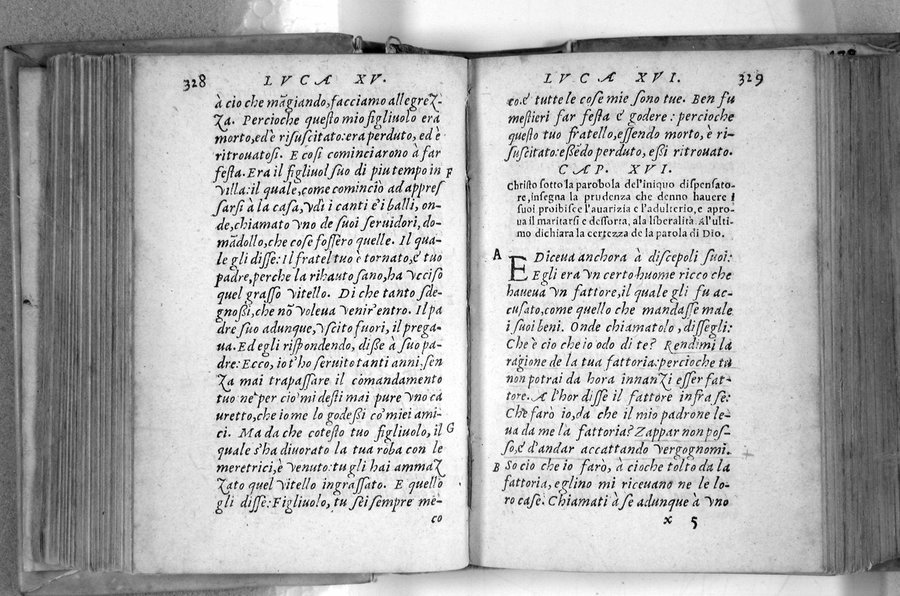 328 LVCÆ XV.
à cio che mãgiando,facciamo allegrez-
za. Percioche questo mio figliuolo era
morto,ed è risuscitato:era perduto, ed è
ritrouatosi. E cosi cominciarono à far
festa. Era il figliuol suo di piu tempo in F
villa:il quale,come cominciò ad appres
sarsi à la casa,vdì i canti e i balli, on-
de,chiamato vno de suoi seruidori, do-
mãdollo,che cose fossero quelle. Il qua-
le gli disse: Il fratel tuo è tornato,e tuo
padre,perche la rihauto sano,ha vcciso
quel grasso vitello. Di che tanto sde-
gnossi,che nõ voleua venir entro. Il pa
dre suo adunque,vscito fuori, il prega-
ua. Ed egli rispondendo, disse à suo pa-
dre: Ecco, io t'ho seruito tanti anni,sen
za mai trapassare il comandamento
tuo ne per cio mi desti mai pure vno ca
uretto,che io me lo godessi cõ miei ami-
ci. Ma da che cotesto tuo figliuolo, il G
quale s'ha diuorato la tua roba con le
meretrici,è venuto:tu gli hai ammaz
zato quel vitello ingrassato. E quello
gli disse:Figliuolo, tu sei sempre me-
co
LVCÆ XVI. 329
co.e tutte le cose mie sono tue. Ben fu
mestieri far festa e godere : percioche
questo tuo fratello,essendo morto, è ri-
suscitato:essẽdo perduto, essi ritrouato.
CAP. XVI.
Christo sotto la parobola del'iniquo dispensato-
re,insegna la prudenza che denno hauere i
suoi proibisce l'auarizia e l'adulterio, e apro-
ua il maritarsi e dessorta, ala liberalità. Al'ulti-
mo dichiara la certezza de la parola di Dio.
A E Diceua anchora à discepoli suoi:
Egli era vn certo huome ricco che
haueua vn fattore,il quale gli fu ac-
cusato,come quello che mandasse male
i suoi beni. Onde chiamatolo , dissegli:
Che è cio che io odo di te? Rendimi la
ragione de la tua fattoria:percioche tu
non potrai da hora innanzi esser fat-
tore. A l'hor disse il fattore infra se:
Che farò io,da che il mio padrone le-
ua da me la fattoria? Zappar non pos-
so,e d'andar accattando vergognomi.
B So cio che io farò, à cioche tolto da la
fattoria, eglino mi riceuano ne le lo-
ro case. Chiamati à se adunque à vno
x 5